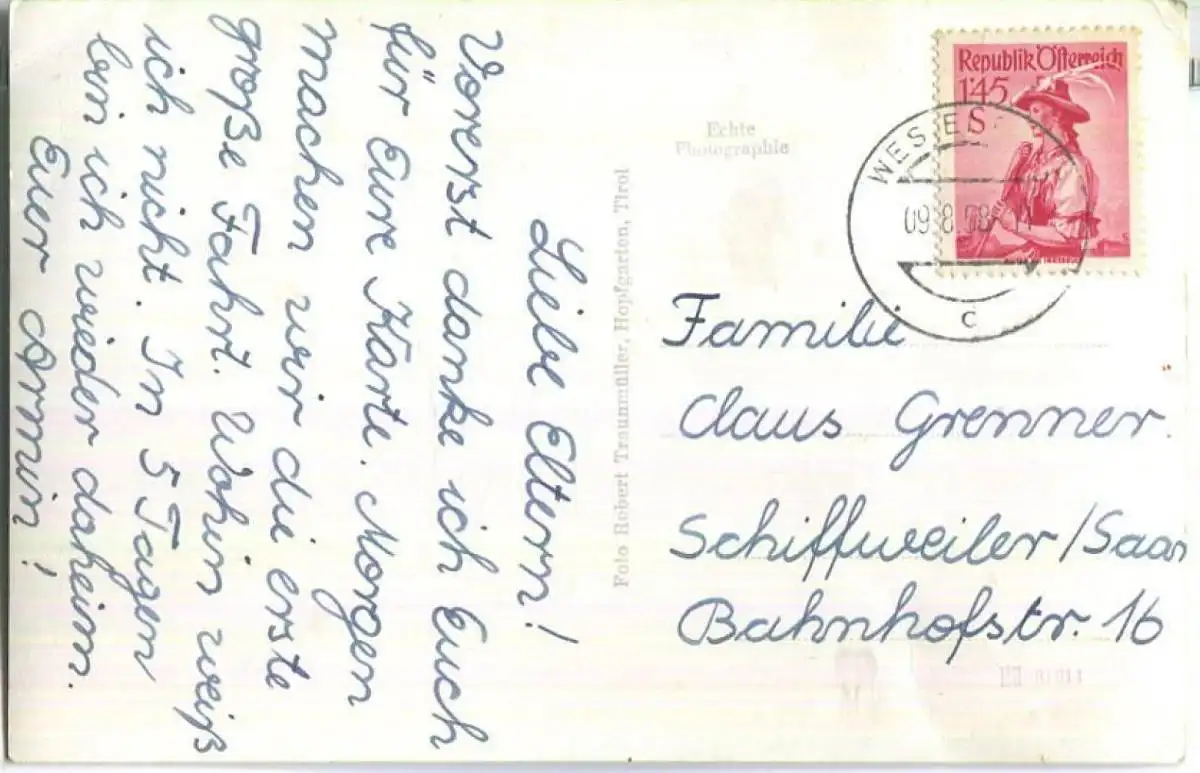 Liebe Eltern!
Vorerst danke ich Euch
für Eure Karte. Morgen
machen wir die erste
große Fahrt. Wohin weiß
ich nicht. In 5 Tagen
bin ich wieder daheim.
Euer Armin!
Foto Robert Traunmüller, Hopfgarten, Tirol
Echte
Photographie
Republik Österreich
1'45
S
WES
C
Familie
Claus Grenner.
Schiffweiler/Saar
Bahnhofstr. 16